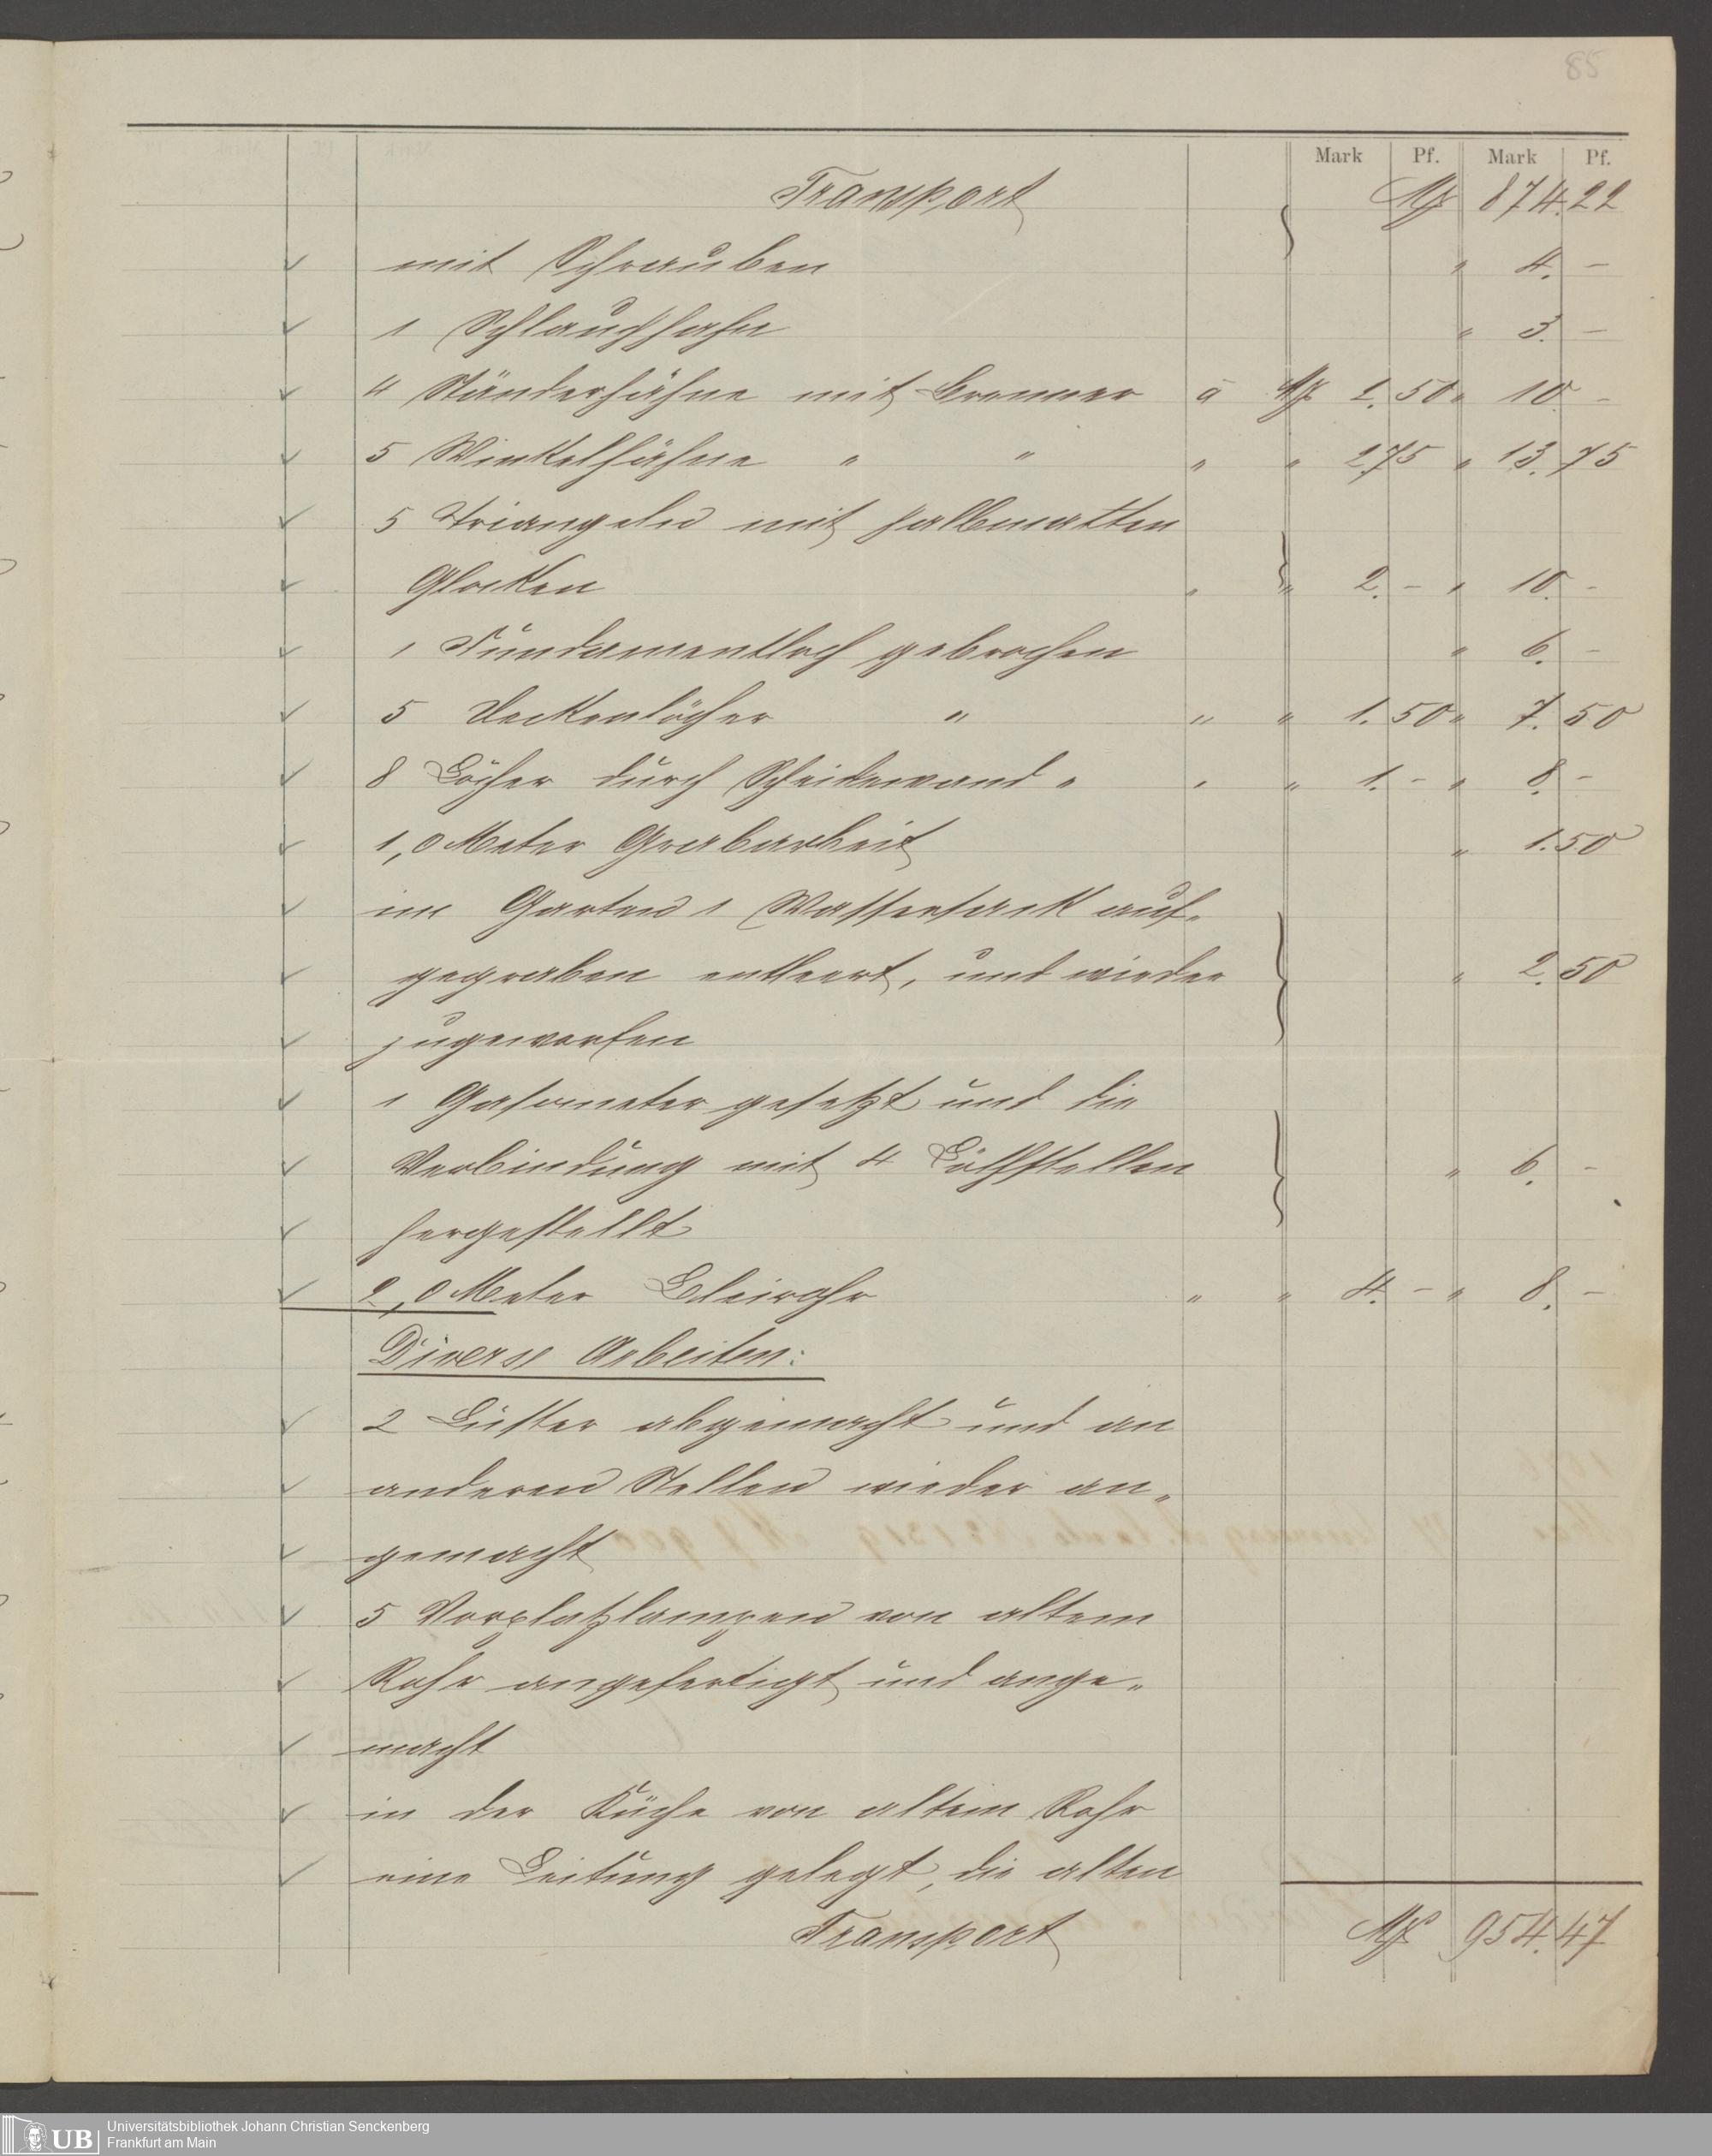 85
Mark Pf. Mark Pf.
Transport M 874.22
mit Schrauben " 4. –
1 Schlauchhahn " 3. –
4 Ständerhähne mit Brenner à M 2.50 " 10. –
5 Winkelhähne " " " " 2.75 " 13.75
5 Triangeln mit halbmatten
Glocken " " 2. – " 10. –
1 Fundamentloch gebrochen " 6. –
5 Deckenlöcher " " " 1.50 " 7.50
8 Löcher durch Scheidewand " " " 1. – " 8. –
1,0 Meter Grabarbeit " 1.50
im Garten 1 Wassersack auf-
gegraben entleert, und wieder " 2.50
zugeworfen
1 Gasometer gesetzt und die
Verbindung mit 4 Löthstellen " 6. –
hergestellt
2,0 Meter Bleirohr " " 4. – " 8. –
Diverse Arbeiten:
2 Lüster abgemacht und an
anderen Stellen wieder an-
gemacht
5 Vorplatzlampen von altem
Rohr angefertigt und ange-
macht
in der Küche von altem Rohr
eine Leitung gelegt, die alten
Transport M 954.47
UB Universitätsbibliothek Johann Christian Senckenberg
Frankfurt am Main